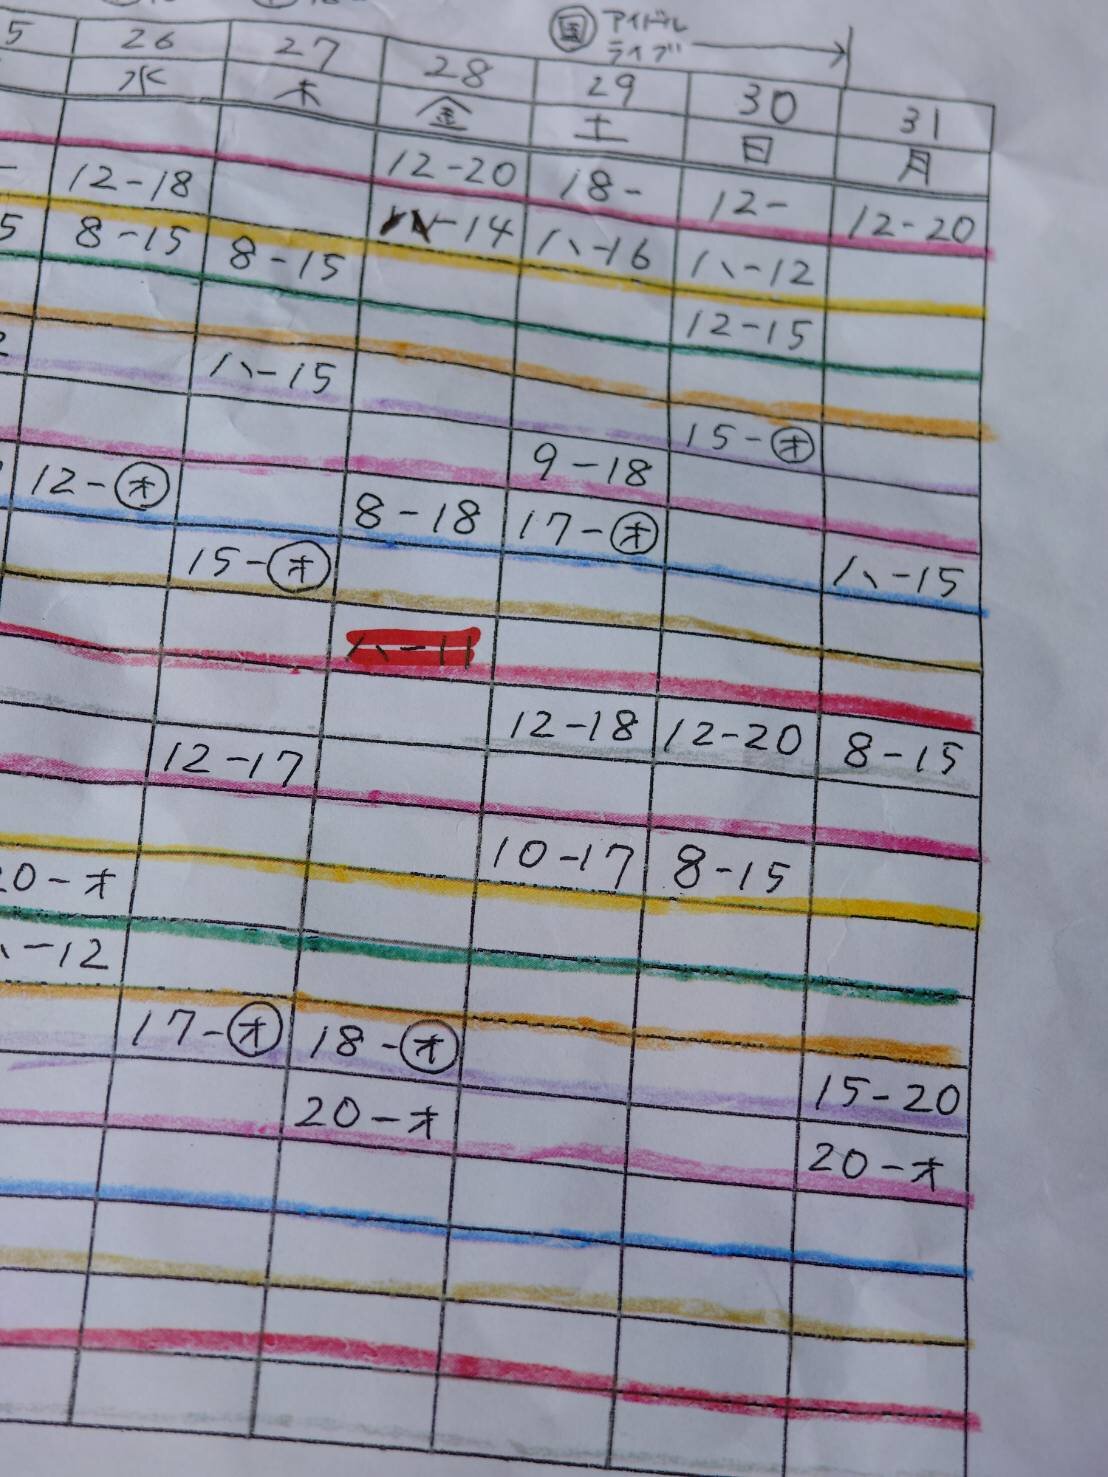 国 アイドル
ライブ
5 26 27 28 29 30 31
水 木 金 土 日 月
12-18 12-20 18- 12- 12-20
5 8-15 8-15 -14 ハ-16 ハ-12
12-15
ハ-15
9-18 15-オ
12-オ 8-18 17-オ
15-オ ハ-15
ハ-11
12-18 12-20 8-15
12-17
10-17 8-15
20-オ
-12
17-オ 18-オ
20-オ 15-20
20-オ